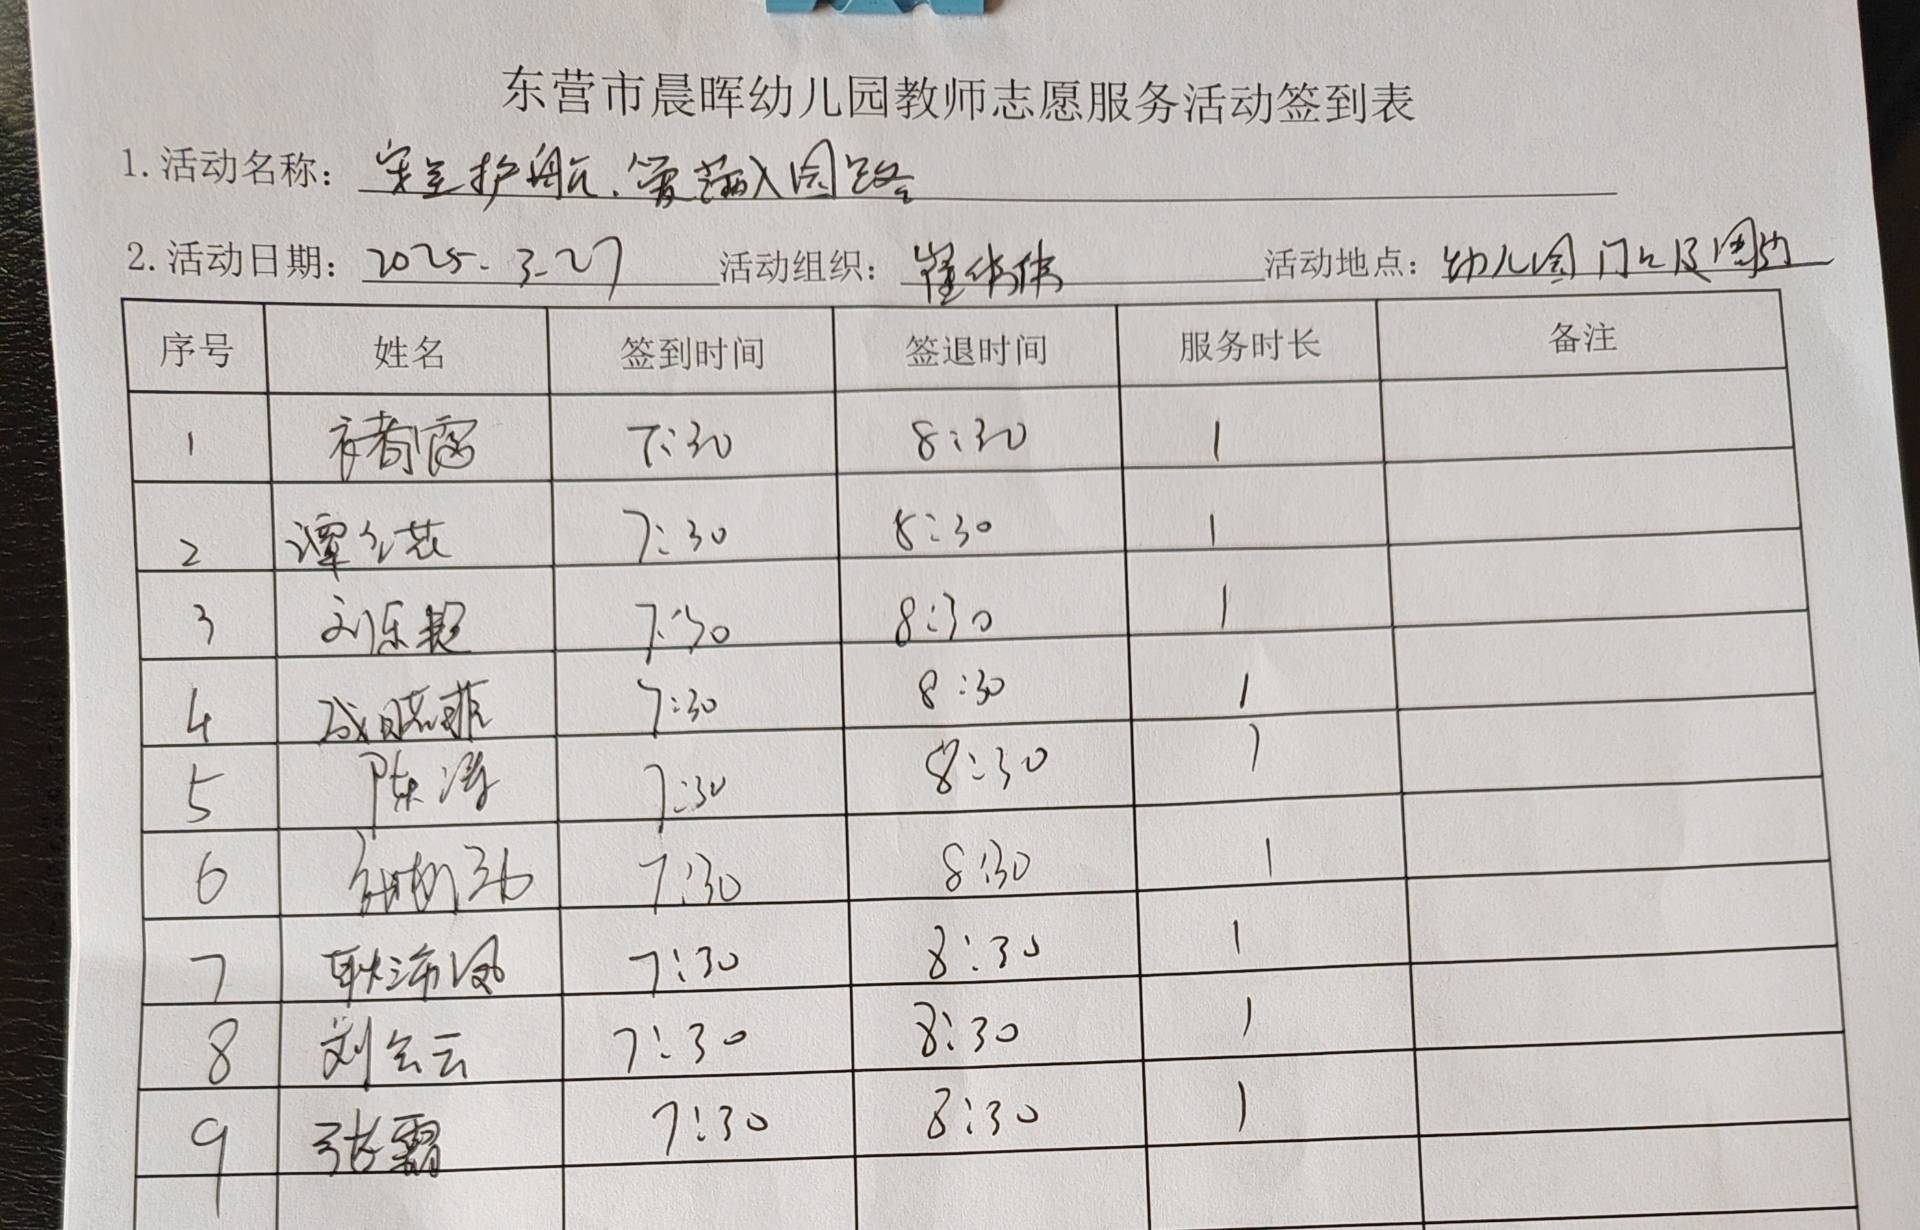 东营市晨晖幼儿园教师志愿服务活动签到表
1.活动名称：安全护航.爱满入园路
2.活动日期：2025.3.27 活动组织：崔伟伟 活动地点：幼儿园门口及周边
序号 姓名 签到时间 签退时间 服务时长 备注
1 褚 7:30 8:30 1
2 谭 7:30 8:30 1
3 刘乐超 7:30 8:30 1
4 成晓菲 7:30 8:30 1
5 陈涛 7:30 8:30 1
6 7:30 8:30 1
7 耿沛凤 7:30 8:30 1
8 刘云云 7:30 8:30 1
9 张霜 7:30 8:30 1